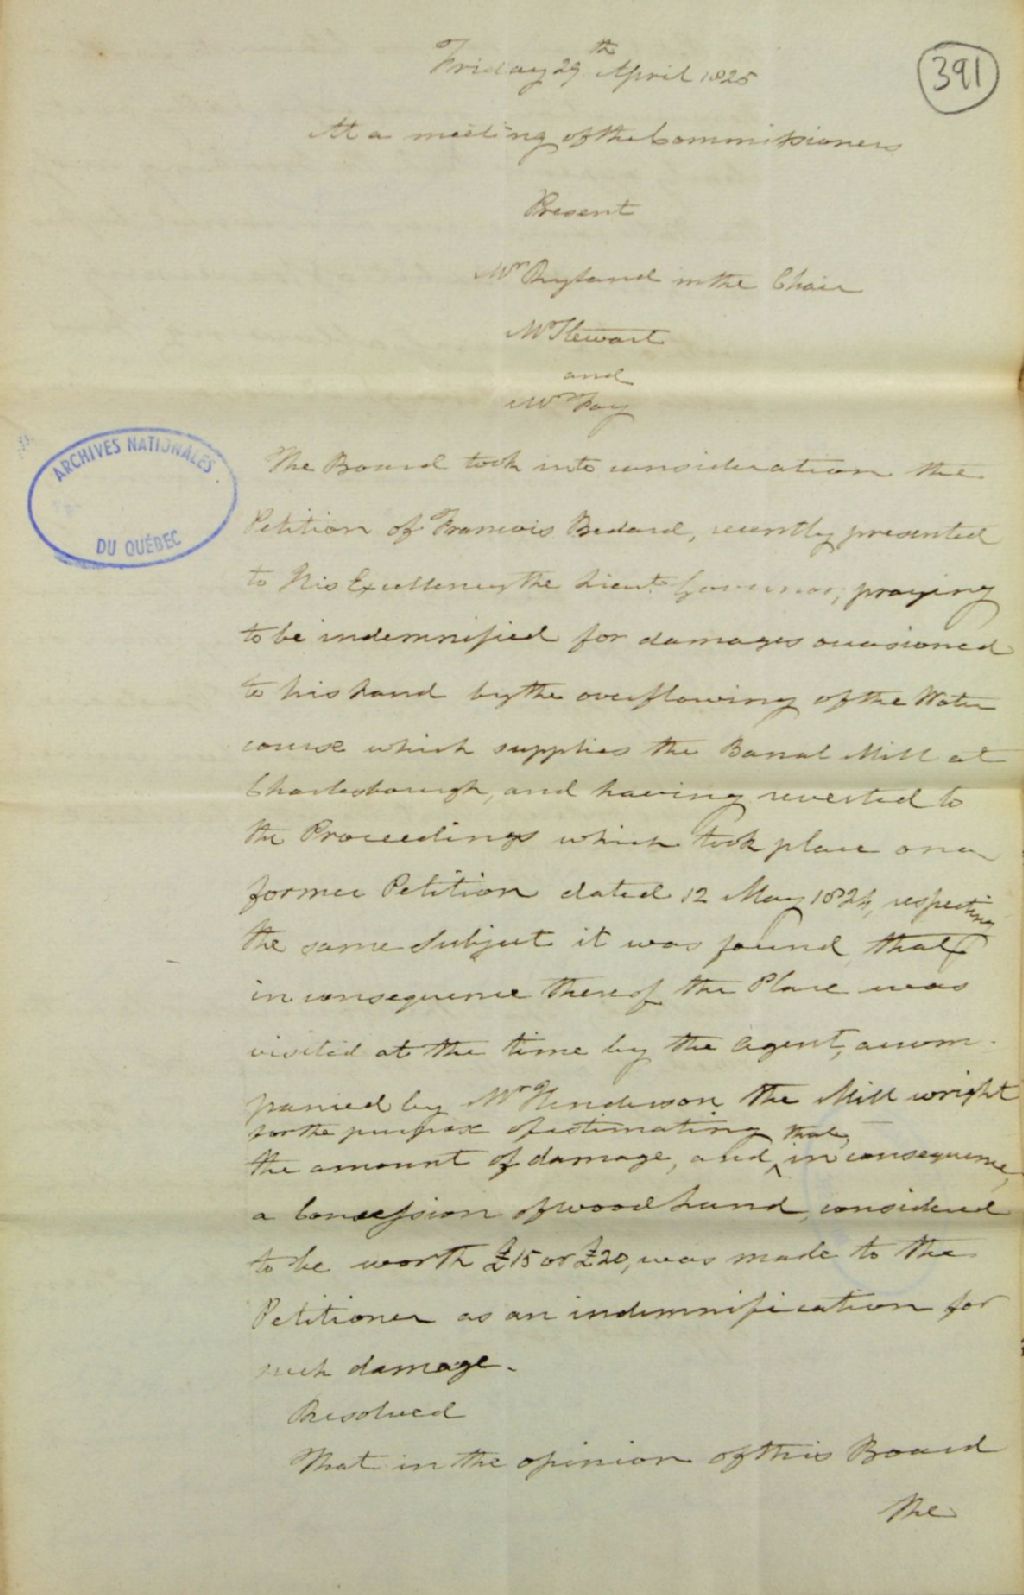 391
Friday 29th April 1825
At a meeting of the Commissioners
Present
Mr Ryland in the Chair
Mr Stewart
and
Mr Foy
ARCHIVES NATIONALES
DU QUÉBEC
The Board took into consideration the
Petition of Francois Bedard, recently presented
to His Excellency the Lieut. Governor, praying
to be indemnified for damages occasioned
to his Land by the overflowing of the Water
course which supplies the Banal Mill at
Charlesbourgh, and having reverted to
the Proceedings which took place on a
former Petition dated 12 May 1824, respecting
the same Subject it was found, that
in consequence thereof the Place was
visited at the time by the Agent, accom-
panied by Mr Henderson the Mill wright
for the purpose of estimating
the amount of damage, and that, in consequence,
a Concession of wood Land, considered
to be worth £15 or £20, was made to the
Petitioner as an indemnification for
such damage.
Resolved
That in the opinion of this Board
the